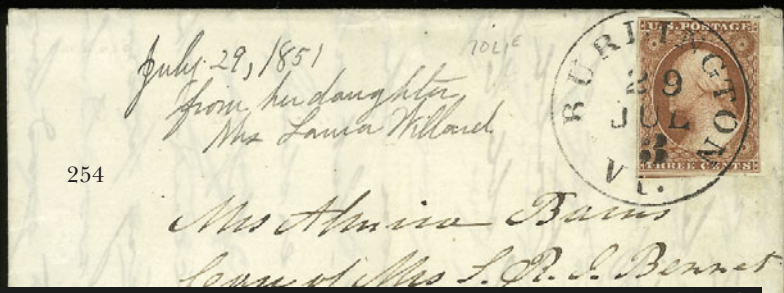 July 29, 1851
from her daughter
Mrs Laura Willard
10LIE
U.S. POSTAGE
THREE CENTS
BURLINGTON
29
JUL
3
Vt.
254
Mrs Almira Barns
Care of Mrs S. R. J. Bennet